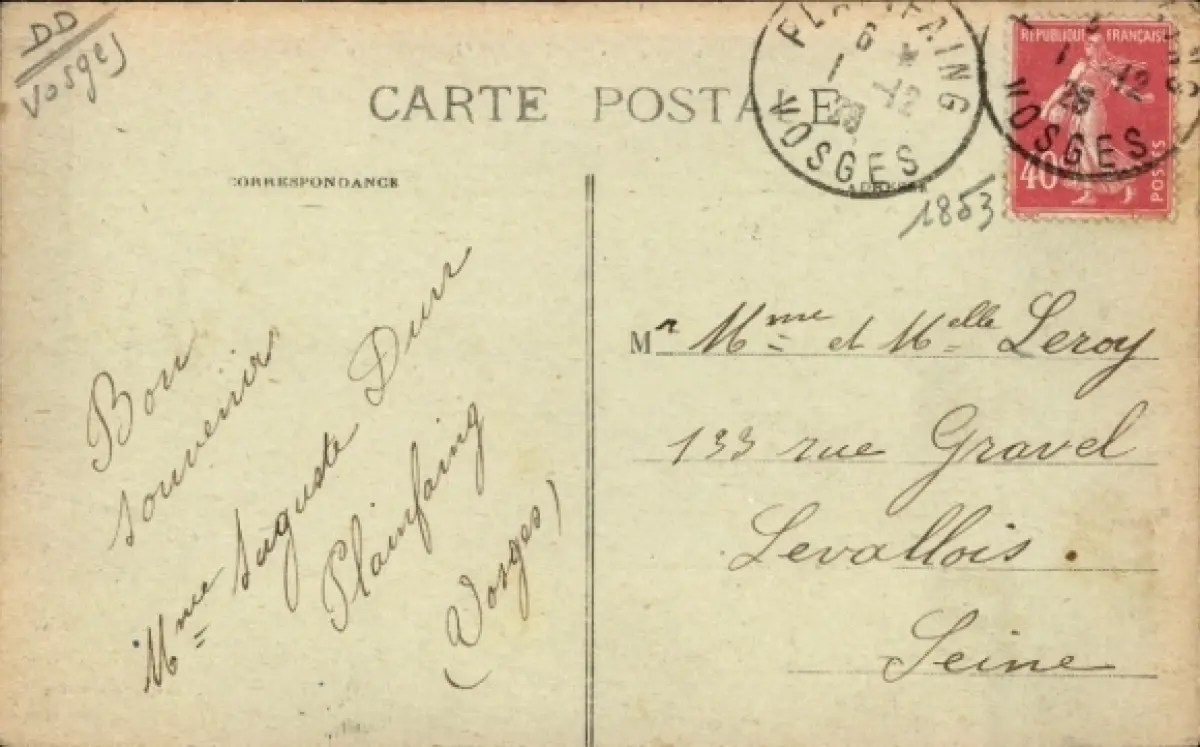 DD
Vosges
CARTE POSTALE
PLAINFAING
6
1 12
26
VOSGES
REPUBLIQUE FRANÇAISE
40c
POSTES
1
12
26
VOSGES
CORRESPONDANCE
ADRESSE
1853
Bon
souvenir
Mme Auguste Durr
Plainfaing
(Vosges)
Mr Mme et Melle Leroy
133 rue Gravel
Levallois.
Seine